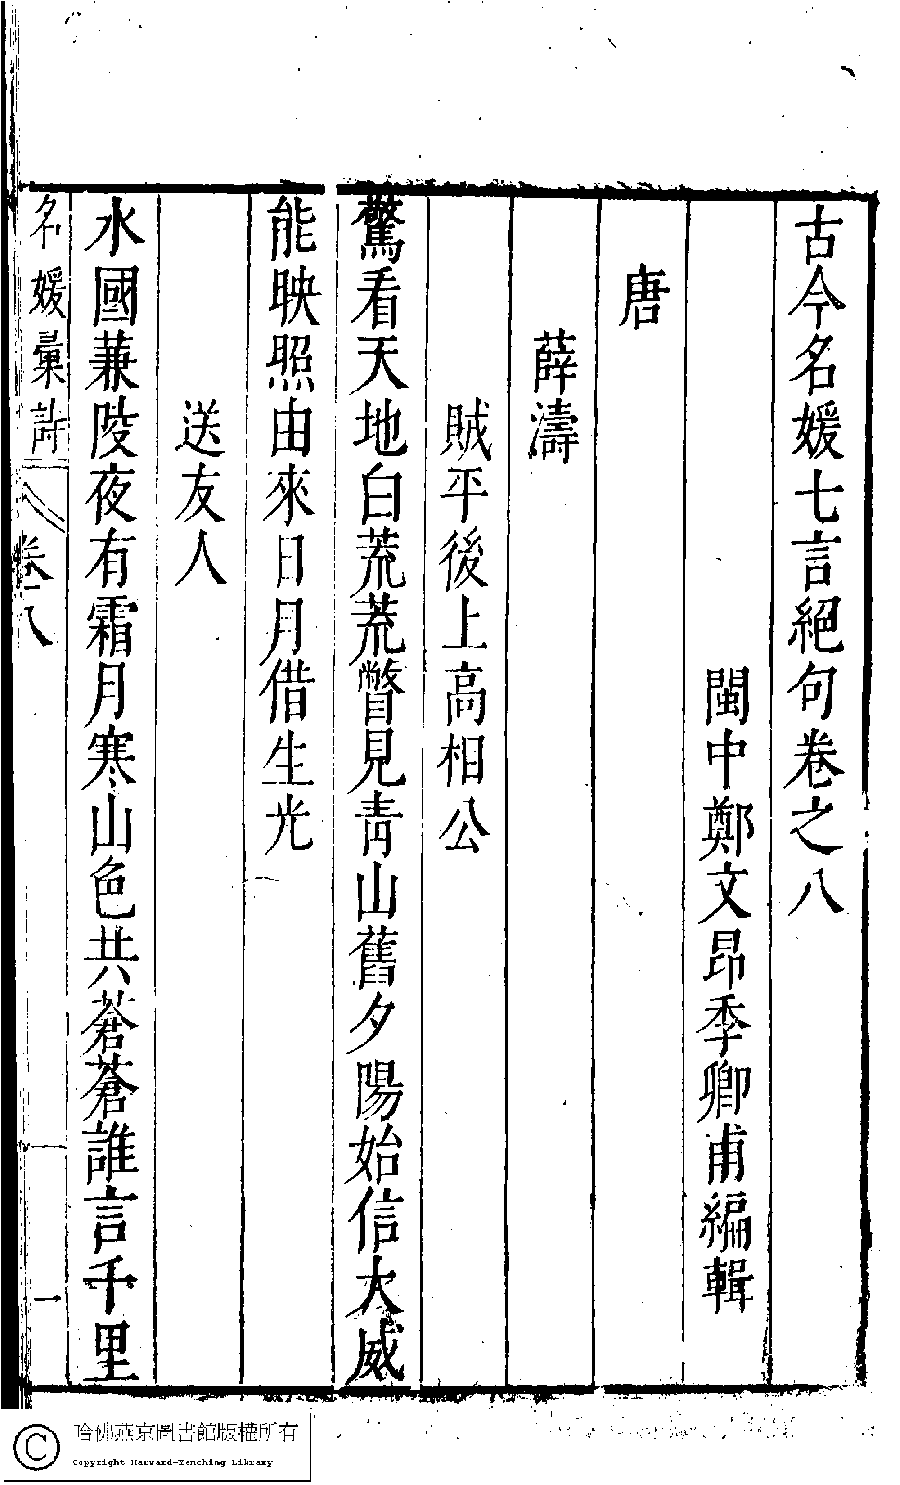 古今名媛七言絕句卷之八
閩中鄭文昂季卿甫編輯
唐
薛濤
賊平後上高相公
驚看天地白荒荒瞥見靑山舊夕陽始信大威
能映照由來日月借生光
送友人
水國蒹葭夜有霜月寒山色共蒼蒼誰言千里
名媛彙詩 卷八 一
哈佛燕京圖書館版權所有
Copyright Harvard-Yenching Library